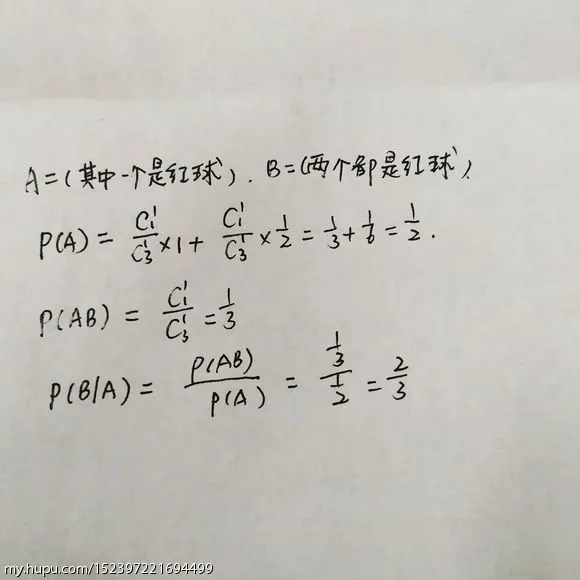 A=(其中一个是红球). B=(两个都是红球)
P(A) = C₁¹/C₃¹ ×1 + C₁¹/C₃¹ × 1/2 = 1/3 + 1/6 = 1/2.
P(AB) = C₁¹/C₃¹ = 1/3
P(B/A) = P(AB)/P(A) = 1/3/1/2 = 2/3
my.hupu.com/152397221694499